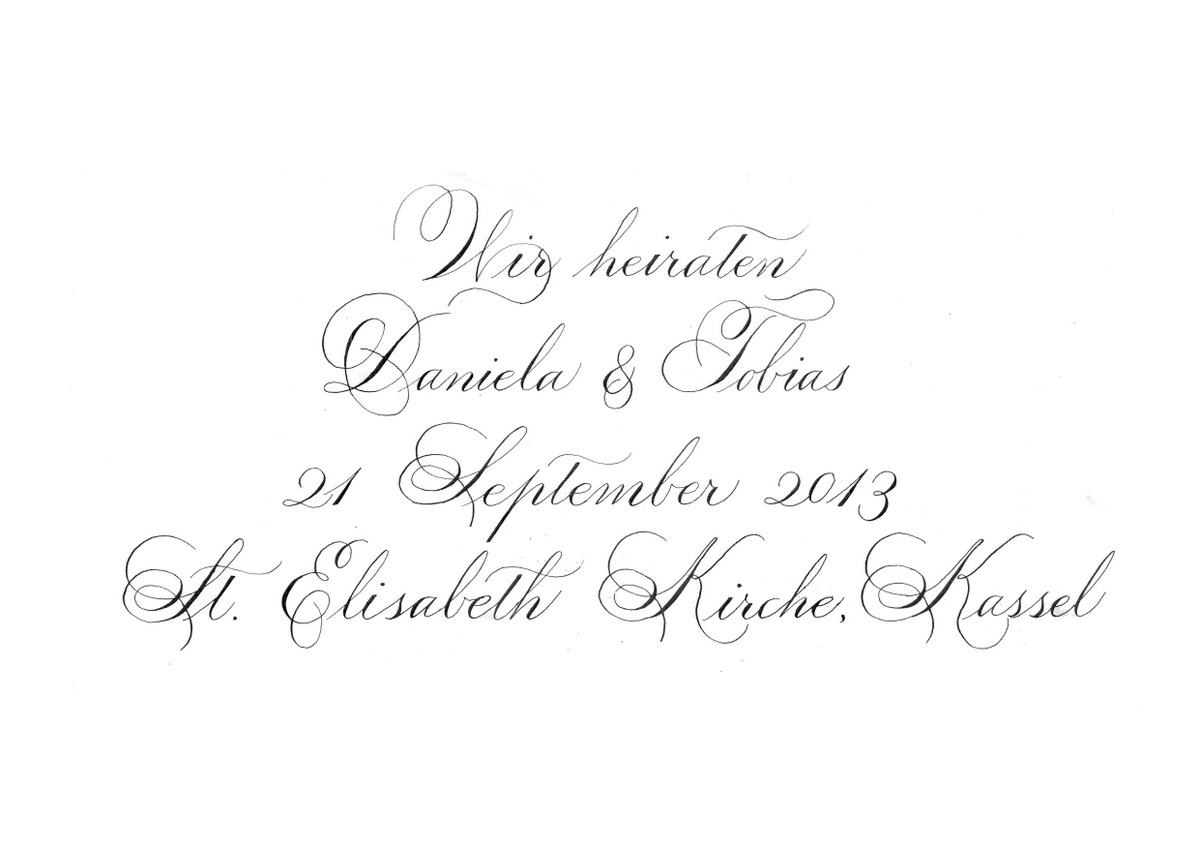 Wir heiraten
Daniela & Tobias
21 September 2013
St. Elisabeth Kirche, Kassel